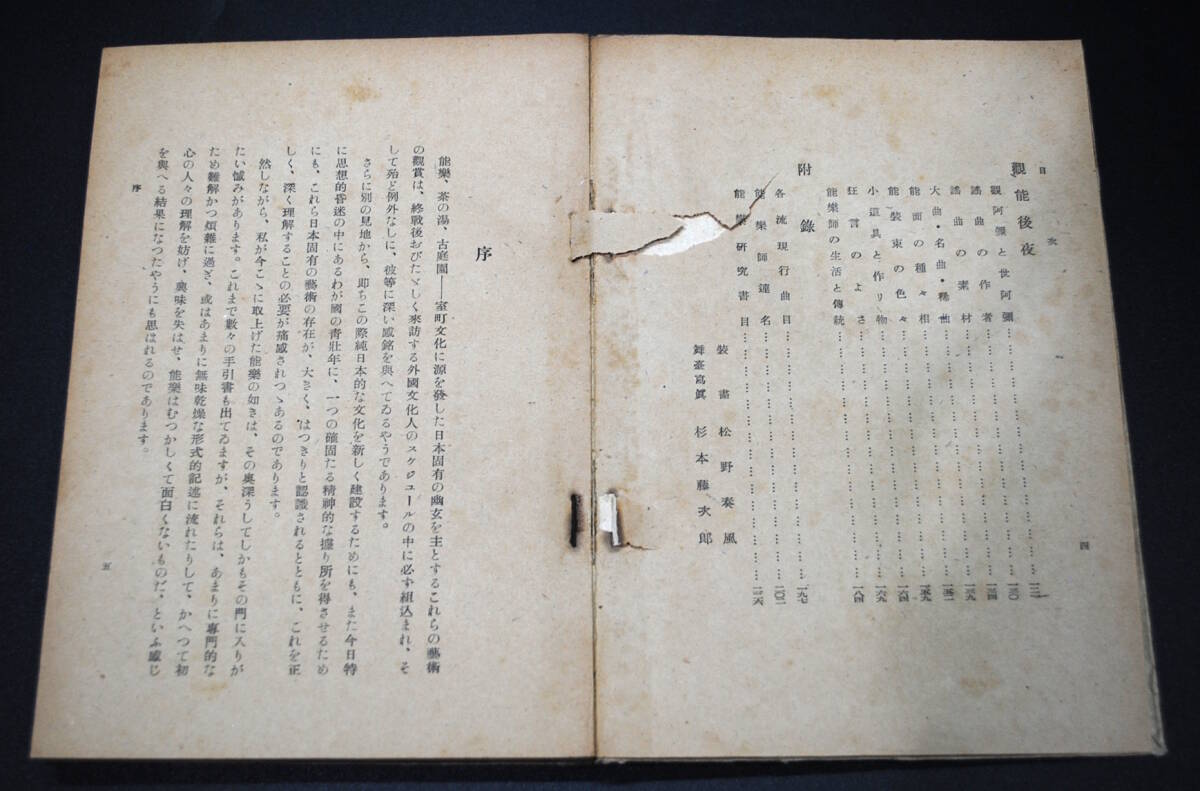 目次
四
觀能後夜
觀阿彌と世阿彌……………………一二一
謠曲の作者……………………一三〇
謠曲の素材……………………一三四
大曲・名曲・稀曲……………………一三九
能面の種々相……………………一五一
能裝束の色々……………………一五九
小道具と作り物……………………一六四
狂言のよさ……………………一六九
能樂師の生活と傳統……………………一八四
附錄
各流現行曲目……………………一九七
能樂師達名……………………二〇一
能樂研究書目……………………
裝畫 松野奏風
舞臺寫眞 杉本藤次郎
序
能樂、茶の湯、古庭園――室町文化に源を發した日本固有の幽玄を主とするこれらの藝術
の觀賞は、終戰後おびたゞしく來訪する外國文化人のスケジュールの中に必ず組込まれ、そ
して殆ど例外なしに、彼等に深い感銘を與へてゐるやうであります。
さらに別の見地から、即ちこの際純日本的な文化を新しく建設するためにも、また今日特
に思想的昏迷の中にあるわが國の靑壯年に、一つの確固たる精神的な據り所を得させるため
にも、これら日本固有の藝術の存在が、大きく、はつきりと認識されるとともに、これを正
しく、深く理解することの必要が痛感されつゝあるのであります。
然しながら、私が今こゝに取上げた能樂の如きは、その奥深うしてしかもその門に入りが
たい憾みがあります。これまで數々の手引書も出てゐますが、それらは、あまりに專門的な
ため難解かつ煩雜に過ぎ、或はあまりに無味乾燥な形式的記述に流れたりして、かへつて初
心の人々の理解を妨げ、興味を失はせ、能樂はむつかしくて面白くないものだ、といふ感じ
を與へる結果になつたやうにも思はれるのであります。
序
五